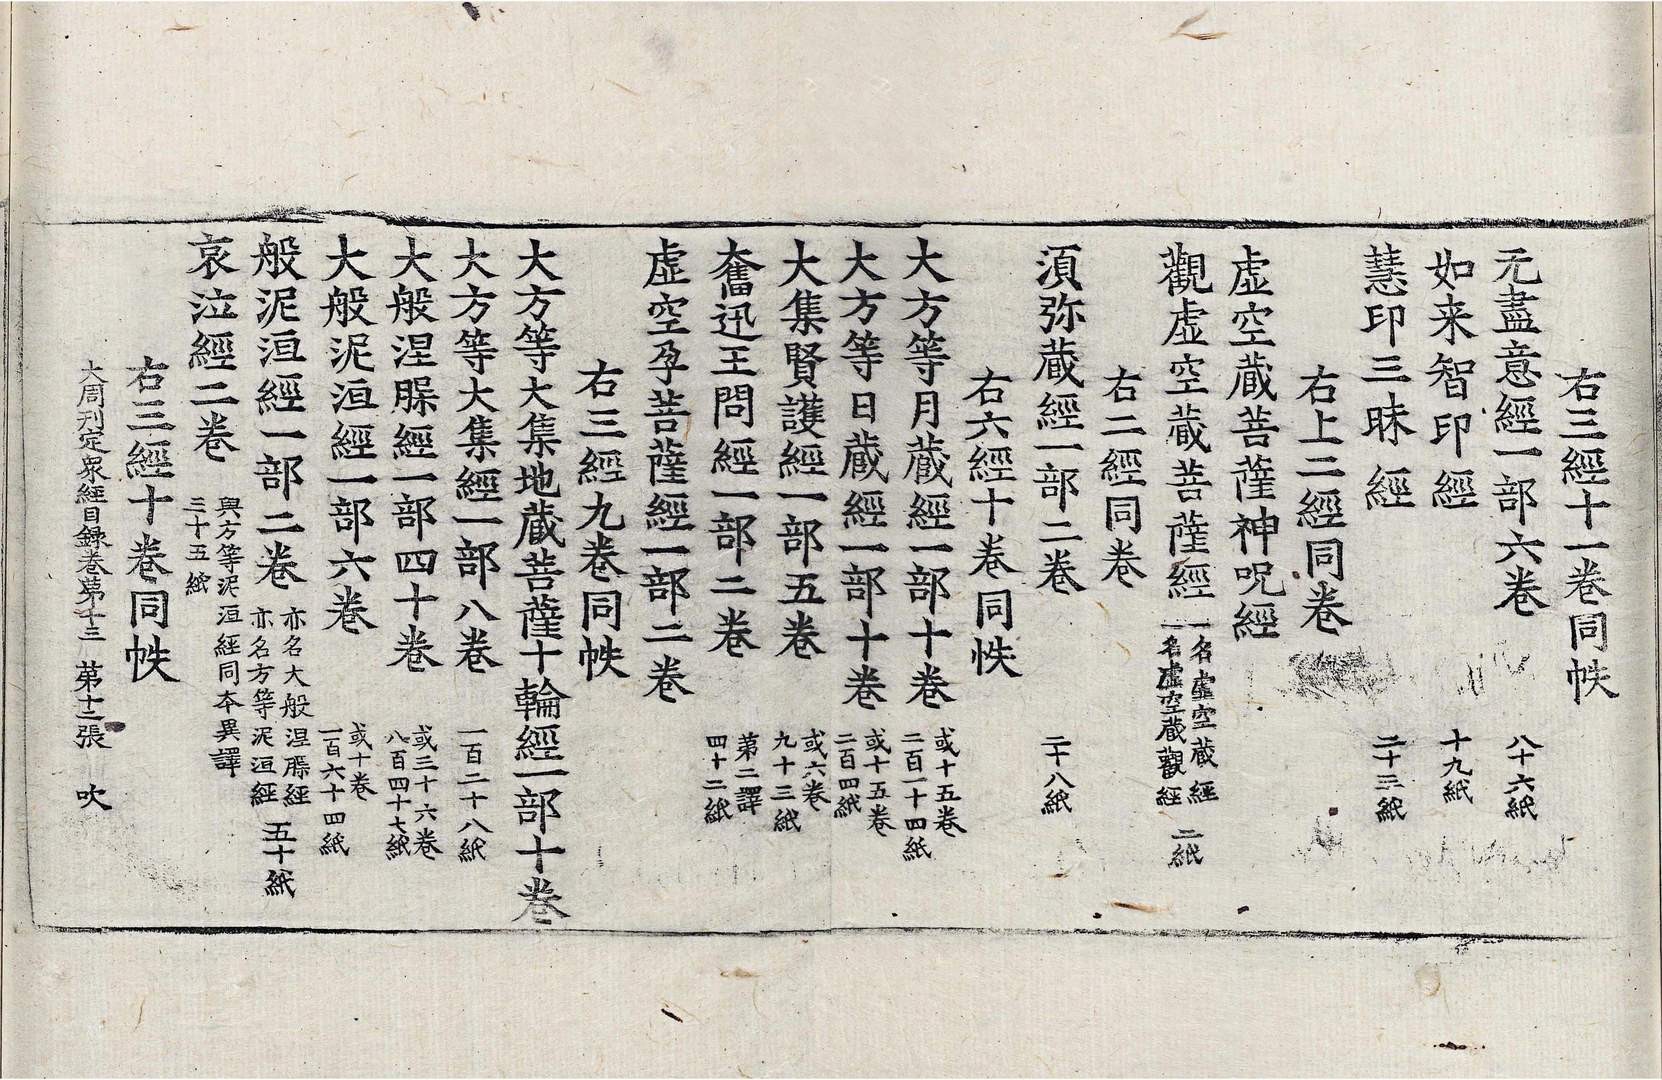 右三經十一卷同帙
元盡意經一部六卷 八十六紙
如来智印經 十九紙
慧印三昧經 二十三紙
右上二經同卷
虛空藏菩薩神呪經
觀虛空藏菩薩經 一名虛空藏經 一名虛空藏觀經 二紙
右二經同卷
須弥藏經一部二卷 二十八紙
右六經十卷同帙
大方等月藏經一部十卷 或十五卷 二百一十四紙
大方等日藏經一部十卷 或十五卷 二百四紙
大集賢護經一部五卷 或六卷 九十三紙
奮迅王問經一部二卷 第二譯 四十二紙
虛空孕菩薩經一部二卷
右三經九卷同帙
大方等大集地藏菩薩十輪經一部十卷
大方等大集經一部八卷 一百二十八紙
大般涅槃經一部四十卷 或三十六卷 八百四十七紙
大般泥洹經一部六卷 或十卷 一百六十四紙
般泥洹經一部二卷 亦名大般涅槃經 亦名方等泥洹經 五十紙
哀泣經二卷 與方等泥洹經同本異譯 三十五紙
右三經十卷同帙
大周刊定衆經目録卷第十三 第十二張 吹